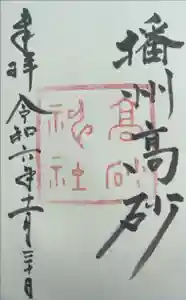 播州高砂
高砂
神社
奉拝
令和六年十一月三十日